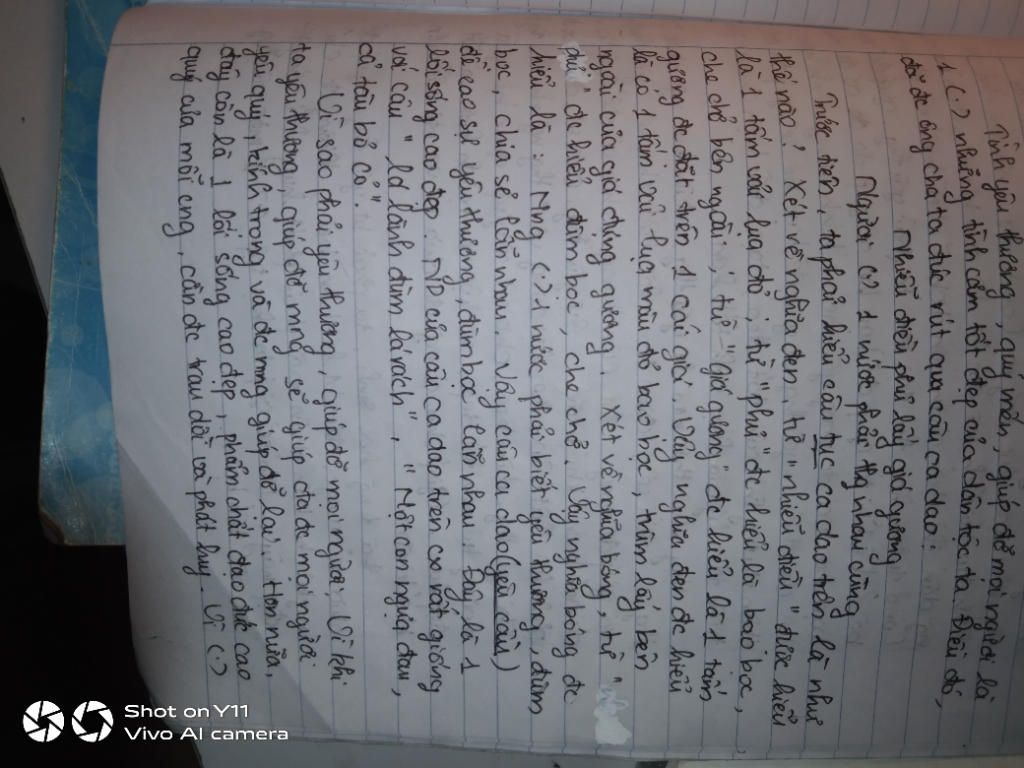 Tình yêu thương, quý mến, giúp đỡ mọi người là
1 (.) những tình cảm tốt đẹp của dân tộc ta. Điều đó,
đã đc ông cha ta đúc rút qua câu ca dao:
Nhiễu điều phủ lấy giá gương
Người (.) 1 nước phải thg nhau cùng
Trước tiên, ta phải hiểu câu tục ca dao trên là như
thế nào? Xét về nghĩa đen, từ "nhiễu điều" được hiểu
là 1 tấm vải lụa đỏ; từ "phủ" đc hiểu là bao bọc,
che chở bên ngoài; từ "giá gương" đc hiểu là 1 tấm
gương đc đặt trên 1 cái giá. Vậy nghĩa đen đc hiểu
là có 1 tấm vải lụa màu đỏ bao bọc, trùm lấy bên
ngoài của giá đựng gương. Xét về nghĩa bóng, từ "
phủ" đc hiểu đùm bọc, che chở. Vậy nghĩa bóng đc
hiểu là: Nng (.) 1 nước phải biết yêu thương, đùm
bọc, chia sẻ lẫn nhau. Vậy câu ca dao (yêu cầu)
đề cao sự yêu thương, đùm bọc lẫn nhau. Đây là 1
lối sống cao đẹp. ND của câu ca dao trên có rất giống
với câu "lá lành đùm lá rách", "Một con ngựa đau,
cả tàu bỏ cỏ".
Vì sao phải yêu thương, giúp đỡ mọi người; Vì khi
ta yêu thương, giúp đỡ mng sẽ giúp cta đc mọi người
yêu quý, kính trọng và đc mng giúp đỡ lại. Hơn nữa,
đây còn là 1 lối sống cao đẹp, phẩm chất đạo đức cao
quý của mỗi cng, cần đc trau dồi và phát huy. Vì (.)
Shot on Y11
Vivo AI camera